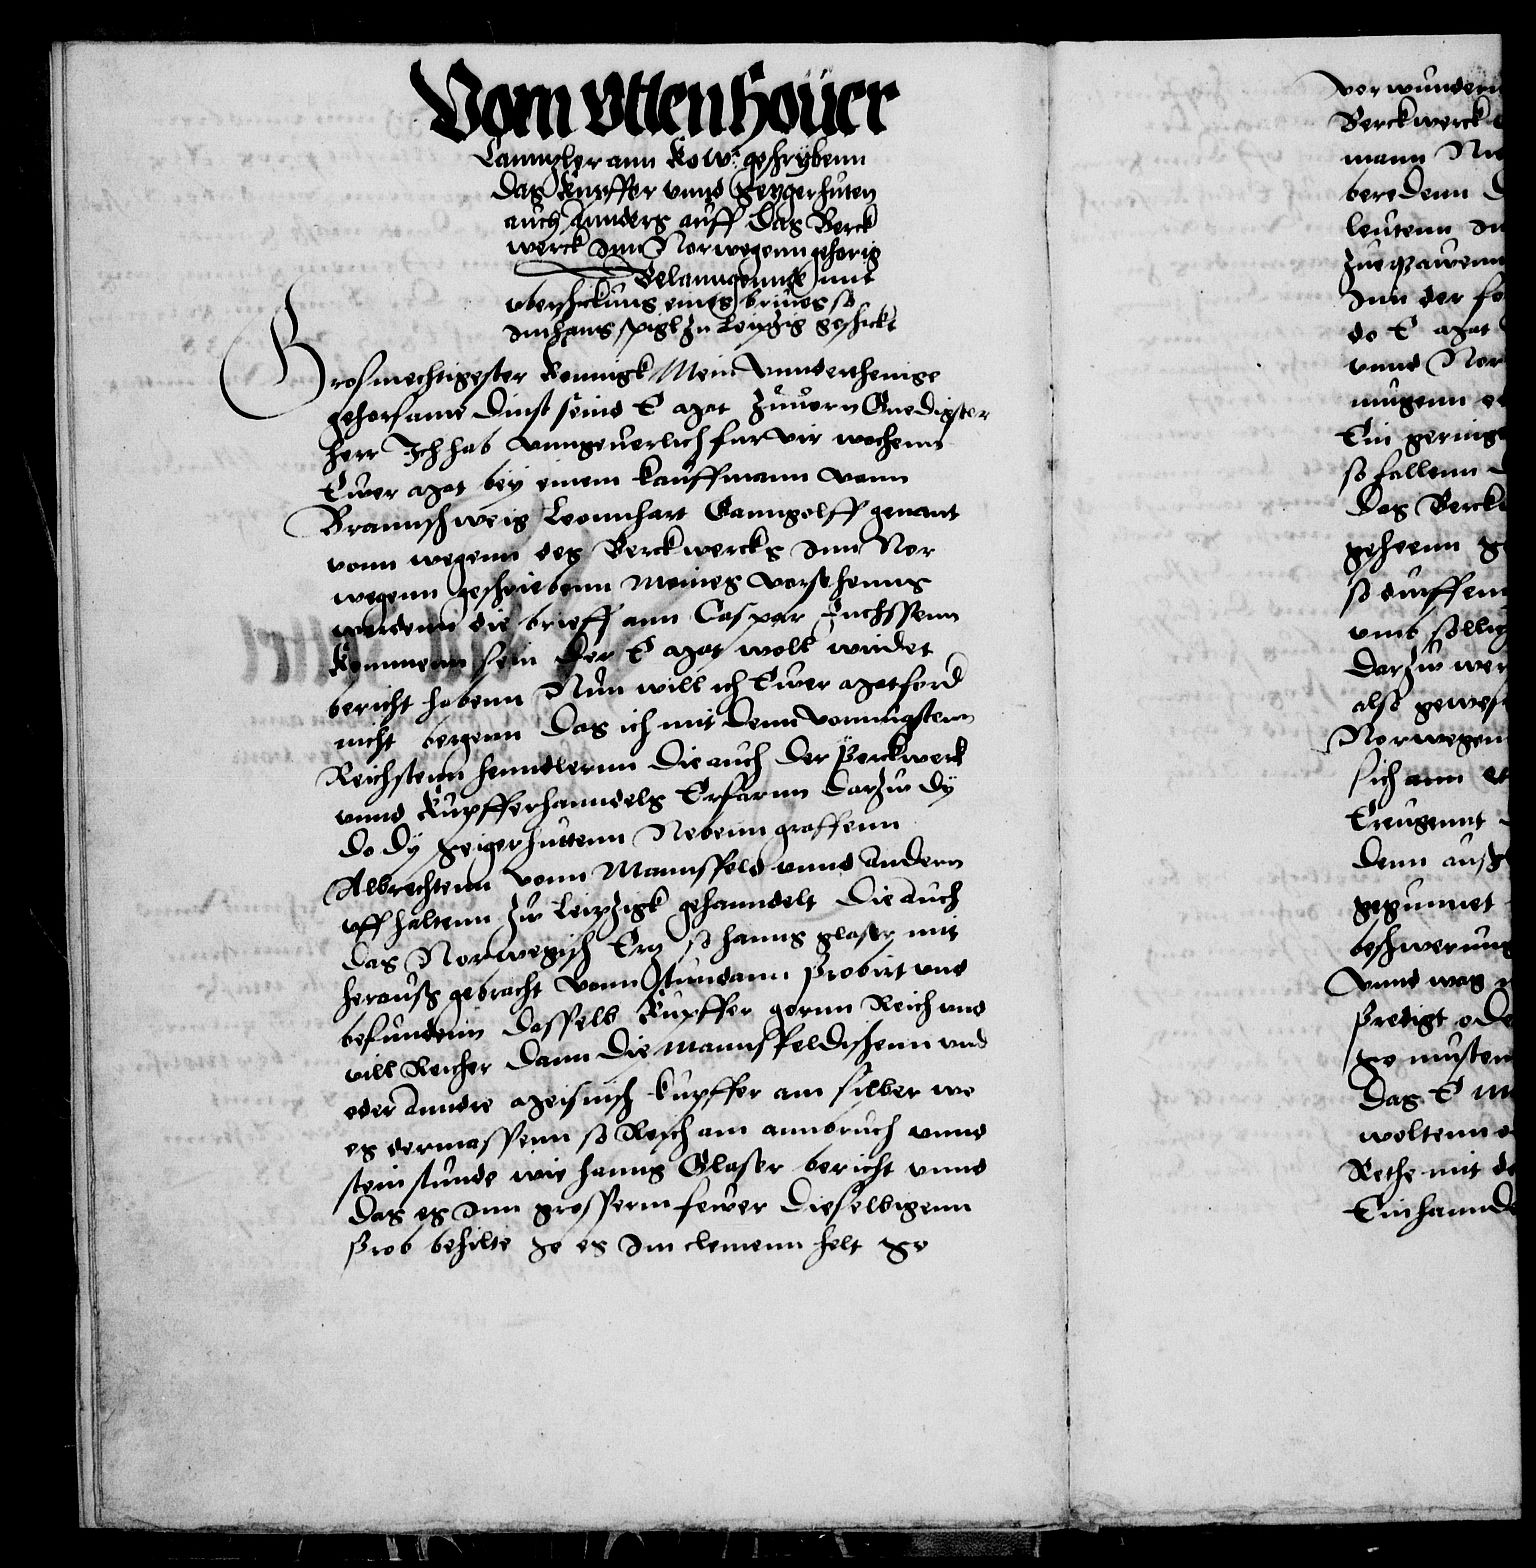 Vom Uttenhouer
Canntzler ann Ko W. geschrybenn
das Kupffer vnnd Seygerhuten
auch annders auff das Berck
werck Inn Norwegenn gehorig
Belanngennde mit
vberschickung eines briues so
Im hans spigl zu Leiptzig geschickt
Grosmechtigester Konnigk Mein Vnnderthenige
gehorsame dinst seind E Mat zuuorn Gnedigster
herr Ich hab vnngeuerlich fur vir wochenn
Ewer Mat bey einem kauffmann vonn
Braunschweig Leonnhart Ganngolff genant
vonn wegenn des Berckwercks Inn Nor
wegenn geschriebenn meines versehenns
werdenn die brieff ann Caspar Fuchssenn
kommenn sein der E Mat woll wirdet
bericht habenn Nun will ich Ewer Mat
nicht bergenn das ich mit denn vornugstenn
Reichstenn henndlernn die auch der Perckwerk
vnnd Kupfferhanndels Erfarnn darzw dy
do dy seigerhuttenn Nebenn graffenn
Albrechtenn vonn Mannsfeld vnnd Andern
vff haltenn zw Leipzigk gehanndelt die auch
das Norwegisch Ertz so hanns glaser mit
herauß gebracht vonn stundann Probirt vnd
befundenn dasselb Kupffer gernn Reich vnd
vill Reicher dann die Mannsfeldischenn vnd
oder Anndre Meisnisch kupffer am silber wo
es dermassenn so Reich am annbruch vnnd
stein stunde wie hanns Glaser bericht vnnd
das es Inn grosserm fewer dieselbigenn
Prob behilte so es Im clemenn helt so
vorwundern
Berckwerck
mann
beredenn
leutenn
Inn der
do E Mat
vnnd Nor
mugenn
Ein geringe
so fallenn
das Berck
gehoenn
so durffenn
vnnd sollich
darzw wer
also gewes
Norwegen
sich ann
Ereugennt
denn auß
gegunnet
beschwerung
vnnd was
Predigt ode
so musten
das E
woltenn
Rethe mit de
Ein hannde